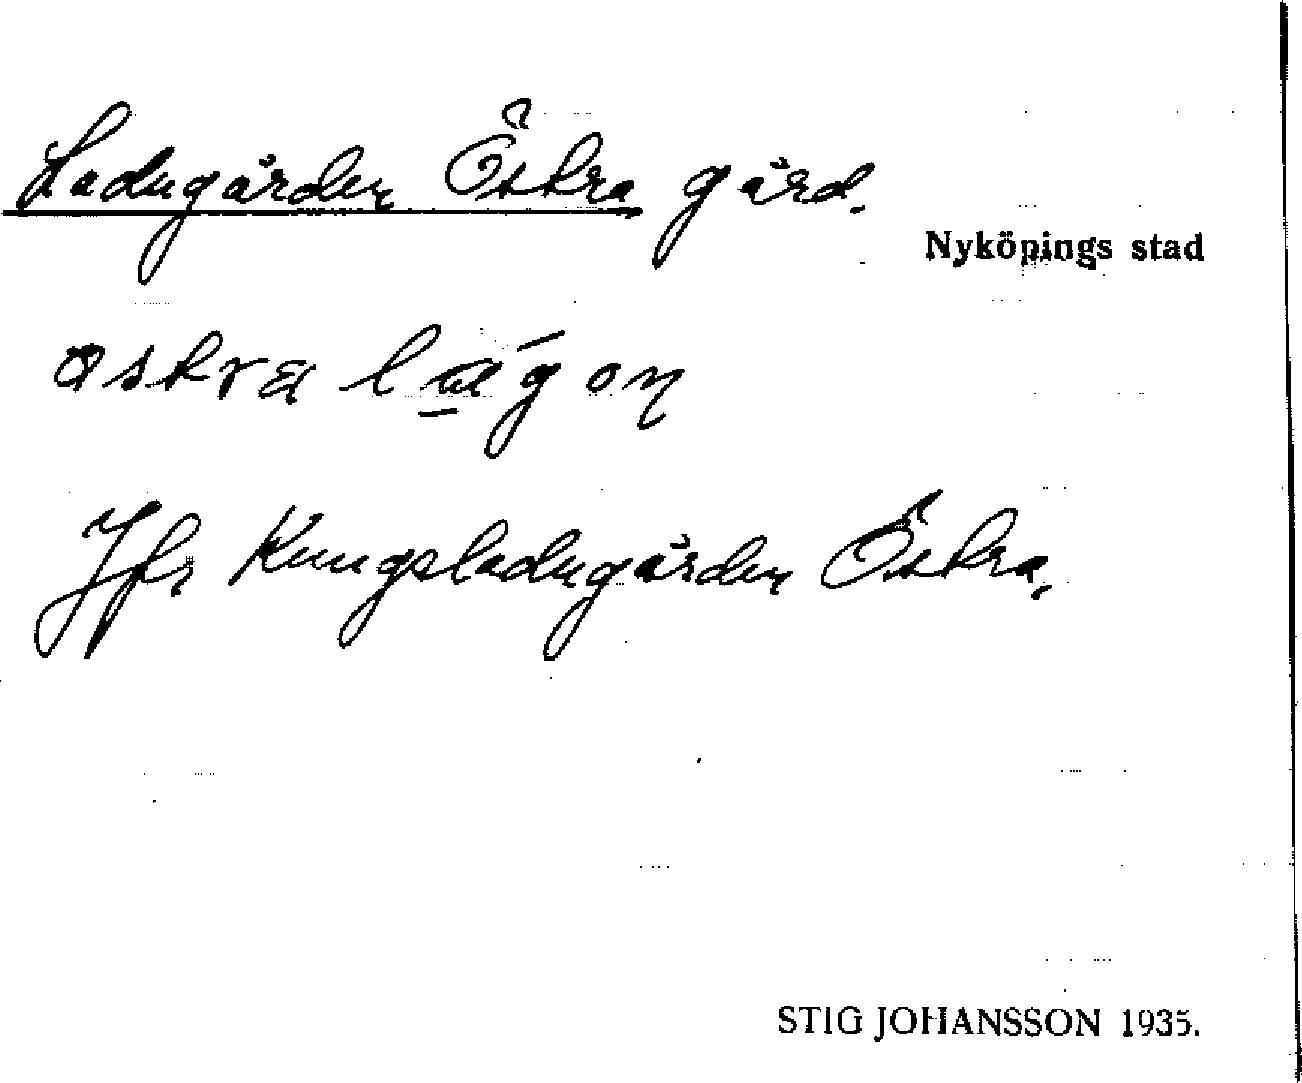 Ladugården Östra gård.
Nyköpings stad
Jfr Kungsladugården Östra.
STIG JOHANSSON 1935.